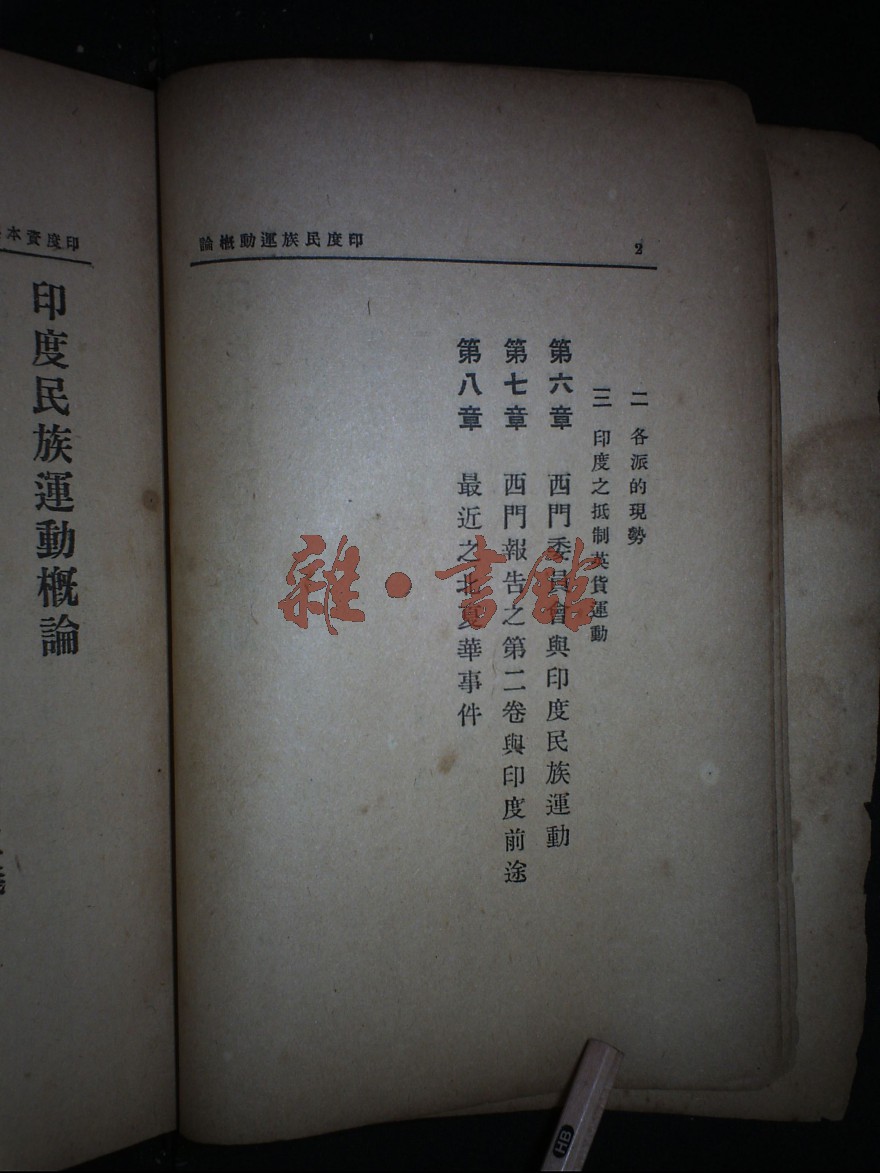 印度民族運動槪論
2
二 各派的現勢
三 印度之抵制英貨運動
第六章 西門委員會與印度民族運動
第七章 西門報告之第二卷與印度前途
第八章 最近之北夏華事件
雜·書館
印度資本
印度民族運動槪論
HB